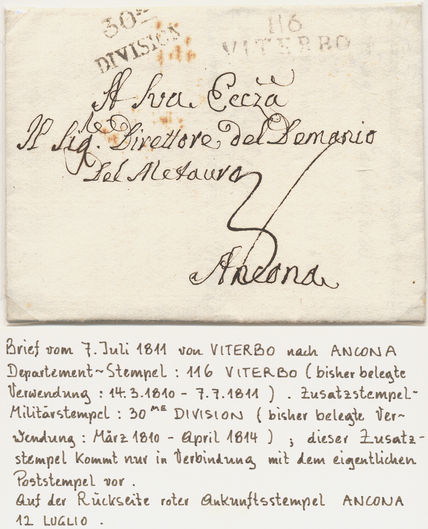 30ME
DIVISION
116
VITERBO
A Sua Eccza
Il Sigre Direttore del Demanio
Del Metauro
3
Ancona
Brief vom 7. Juli 1811 von VITERBO nach ANCONA
Departement-Stempel : 116 VITERBO ( bisher belegte
Verwendung : 14.3.1810 - 7.7.1811 ) . Zusatzstempel-
Militärstempel : 30ME DIVISION ( bisher belegte Ver-
wendung : März 1810 - April 1814 ) ; dieser Zusatz-
stempel kommt nur in Verbindung mit dem eigentlichen
Poststempel vor .
Auf der Rückseite roter Ankunftsstempel ANCONA
12 LUGLIO .